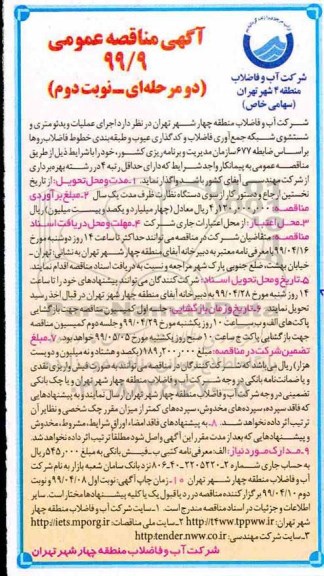 آگهی مناقصه عمومی
۹۹/۹
(دو مرحله‌ای_نوبت دوم)
شرکت آب و فاضلاب
منطقه ۴ شهر تهران
(سهامی خاص)
شـرکت آب و فاضلاب منطقه چهار شـهر تهران در نظر دارد اجرای عملیات ویدئو متری و
شستشوی شبکه جمع‌آوری فاضلاب و کدگذاری عیوب و طبقه‌بندی خطوط فاضلاب روها
براساس ضابطه ۶۷۷ سازمان مدیریت و برنامه‌ریزی کشور، خود را با شرایط ذیل از طریق
مناقصه عمومی به پیمانکار واجد شرایط که دارای حداقل رتبه ۴ در رشته بهره‌برداری
از شرکت مهندسی آبفای کشور باشد، واگذار نماید. ۱_مدت و محل تحویل: از تاریخ
نخستین ارجاع و دستور کار از سوی دستگاه نظارت ظرف مدت یک سال ۲_مبلغ برآوردی
مناقصه: ریال معادل (چهار میلیارد و یکصد و بیست میلیون) ریال
۳_محل اعتبار: از محل اعتبارات جاری شرکت ۴_مهلت و محل دریافت اسناد
مناقصه: متقاضیان شرکت در مناقصه می‌توانند حداکثر تا ساعت ۱۴ روز دوشنبه مورخ
۹۹/۰۴/۱۶ با معرفی‌نامه معتبر به دبیرخانه آبفای منطقه چهار شهر تهران به نشانی: تهران_
خیابان بهشت، ضلع جنوبی پارک شهر مراجعه و نسبت به دریافت اسناد مناقصه اقدام نمایند.
۵_تاریخ و محل تحویل اسناد: شرکت کنندگان می‌توانند پیشنهادهای خود را تا ساعت
۱۴ روز شنبه مورخ ۹۹/۰۴/۲۸ به دبیرخانه آبفای منطقه چهار شهر تهران در قبال اخذ رسید
تحویل نمایند. ۶_تاریخ و زمان بازگشایی: جلسه اول کمیسیون مناقصه جهت بازگشایی
پاکت‌های الف و ب ساعت ۱۰ روز یکشنبه مورخ ۹۹/۰۴/۲۹ و جلسه دوم کمیسیون مناقصه
جهت بازگشایی پاکت ج ساعت ۱۰ روز یکشنبه مورخ ۹۹/۰۵/۰۵ خواهد بود. ۷_مبلغ
تضمین شرکت در مناقصه: مبلغ ریال
هزار) ریال می‌باشد که شرکت کنندگان در مناقصه می‌توانند به صورت فیش واریزی نقدی
و یا ضمانت‌نامه بانکی در وجه شرکت آب و فاضلاب منطقه چهار شهر تهران و یا چک بانکی
تضمینی در وجه شرکت آب و فاضلاب منطقه چهار شهر تهران ارسال نمایند و به پیشنهادهایی
که فاقد سپرده، سپرده‌های مخدوش، سپرده‌های کمتر از میزان مقرر، چک شخصی و نظایر آن
ترتیب اثر داده نخواهد شد. ۸_به پیشنهادهای فاقد امضاء اوراق شرایط، مشروط، مخدوش
و پیشنهادهایی که بعد از مدت مقرر این آگهی واصل شود مطلقا ترتیب اثر داده نخواهد شد.
۹_مدارک مورد نیاز: الف_معرفی‌نامه کتبی ب_فیش بانکی به مبلغ ریال
به حساب جاری شماره نزد بانک سامان شعبه بازار به نام شرکت
آب و فاضلاب منطقه چهار شهر تهران ۱۰_زمان چاپ آگهی: نوبت اول ۹۹/۰۴/۰۸ و نوبت
دوم ۹۹/۰۴/۱۰ برگزار کننده مناقصه در رد یا قبول یک یا کلیه پیشنهادها مختار است. سایر
اطلاعات و جزئیات در اسناد مناقصه مندرج است. ۱_سایت شرکت آب و فاضلاب منطقه چهار
شهر تهران: ۲_سایت ملی مناقصات: http://iets.mporg.ir
۳_سایت شرکت مهندسی: http://tender.nww.co.ir
شرکت آب و فاضلاب منطقه چهار شهر تهران